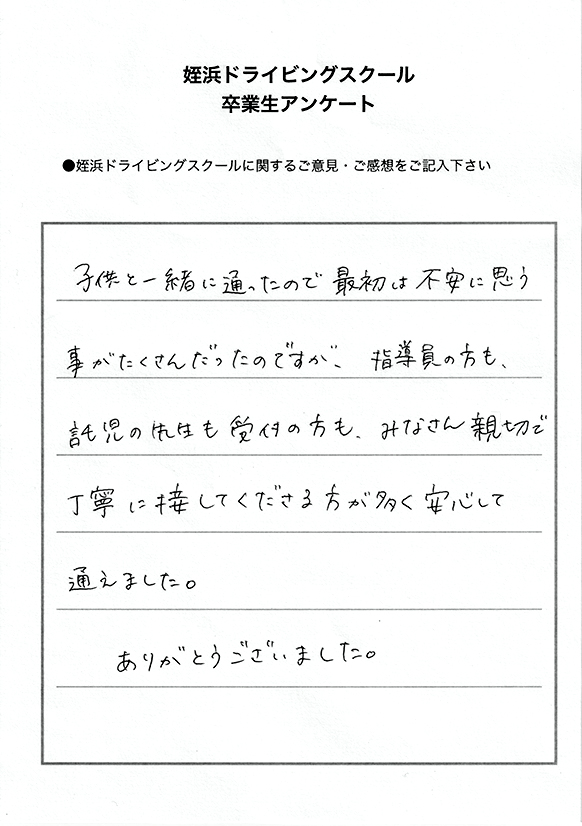 姪浜ドライビングスクール
卒業生アンケート
●姪浜ドライビングスクールに関するご意見・ご感想をご記入下さい
子供と一緒に通ったので最初は不安に思う
事がたくさんだったのですが、指導員の方も、
託児の先生も受付の方も、みなさん親切で
丁寧に接してくださる方が多く安心して
通えました。
ありがとうございました。